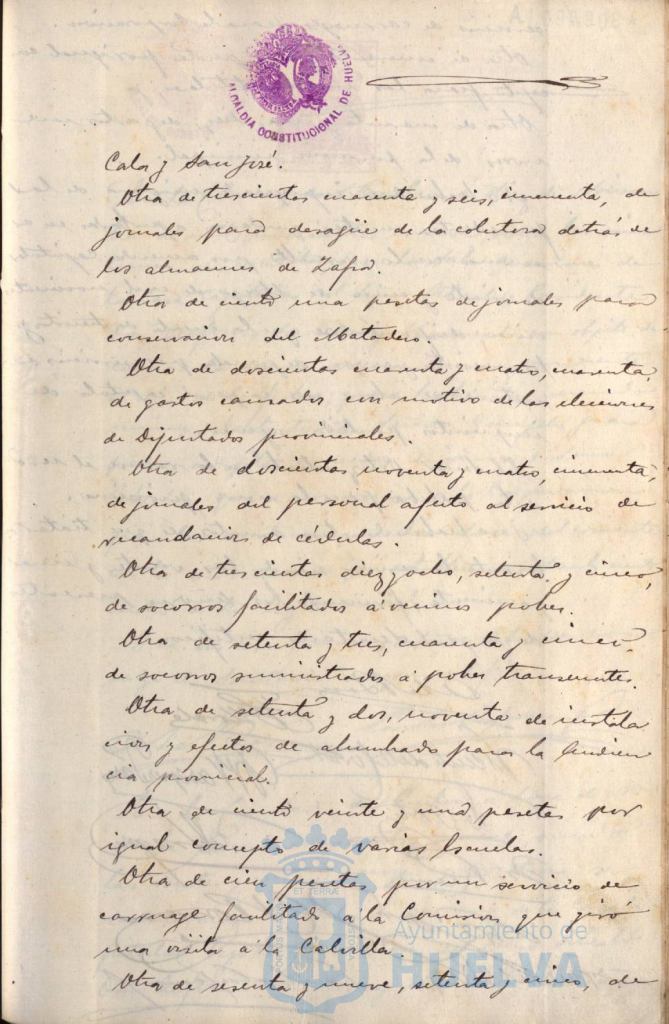 ALCALDIA CONSTITUCIONAL DE HUELVA
Cala y San José.
Otra de trescientas cuarenta y seis, cincuenta, de
jornales para desagüe de la colectora detrás de
los almacenes de Zafra.
Otra de ciento una pesetas de jornales para
conservación del Matadero.
Otra de doscientas cuarenta y cuatro, cuarenta,
de gastos causados con motivo de las elecciones
de Diputados provinciales.
Otra de doscientas noventa y cuatro, cincuenta,
de jornales del personal afecto al servicio de
recaudación de cédulas.
Otra de trescientas diez y ocho, setenta y cinco,
de socorros facilitados á vecinos pobres.
Otra de setenta y tres, cuarenta y cinco
de socorros suministrados á pobres transeuntes.
Otra de setenta y dos, noventa de instala
ción y efectos de alumbrado para la Audien
cia provincial.
Otra de ciento veinte y una pesetas por
igual concepto de varias Escuelas.
Otra de cien pesetas por un servicio de
carruage facilitado á la Comisión que giró
una visita á la Calvilla.
Otra de sesenta y nueve, setenta y cinco, de
Ayuntamiento de
HUELVA